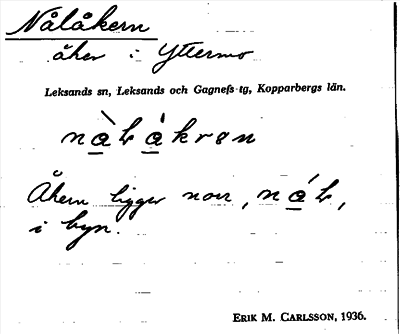 Nålåkern
åker i Yttermo
Leksands sn, Leksands och Gagnefs tg, Kopparbergs län.
Åkern ligger norr,
i byn.
ERIK M. CARLSSON, 1936.